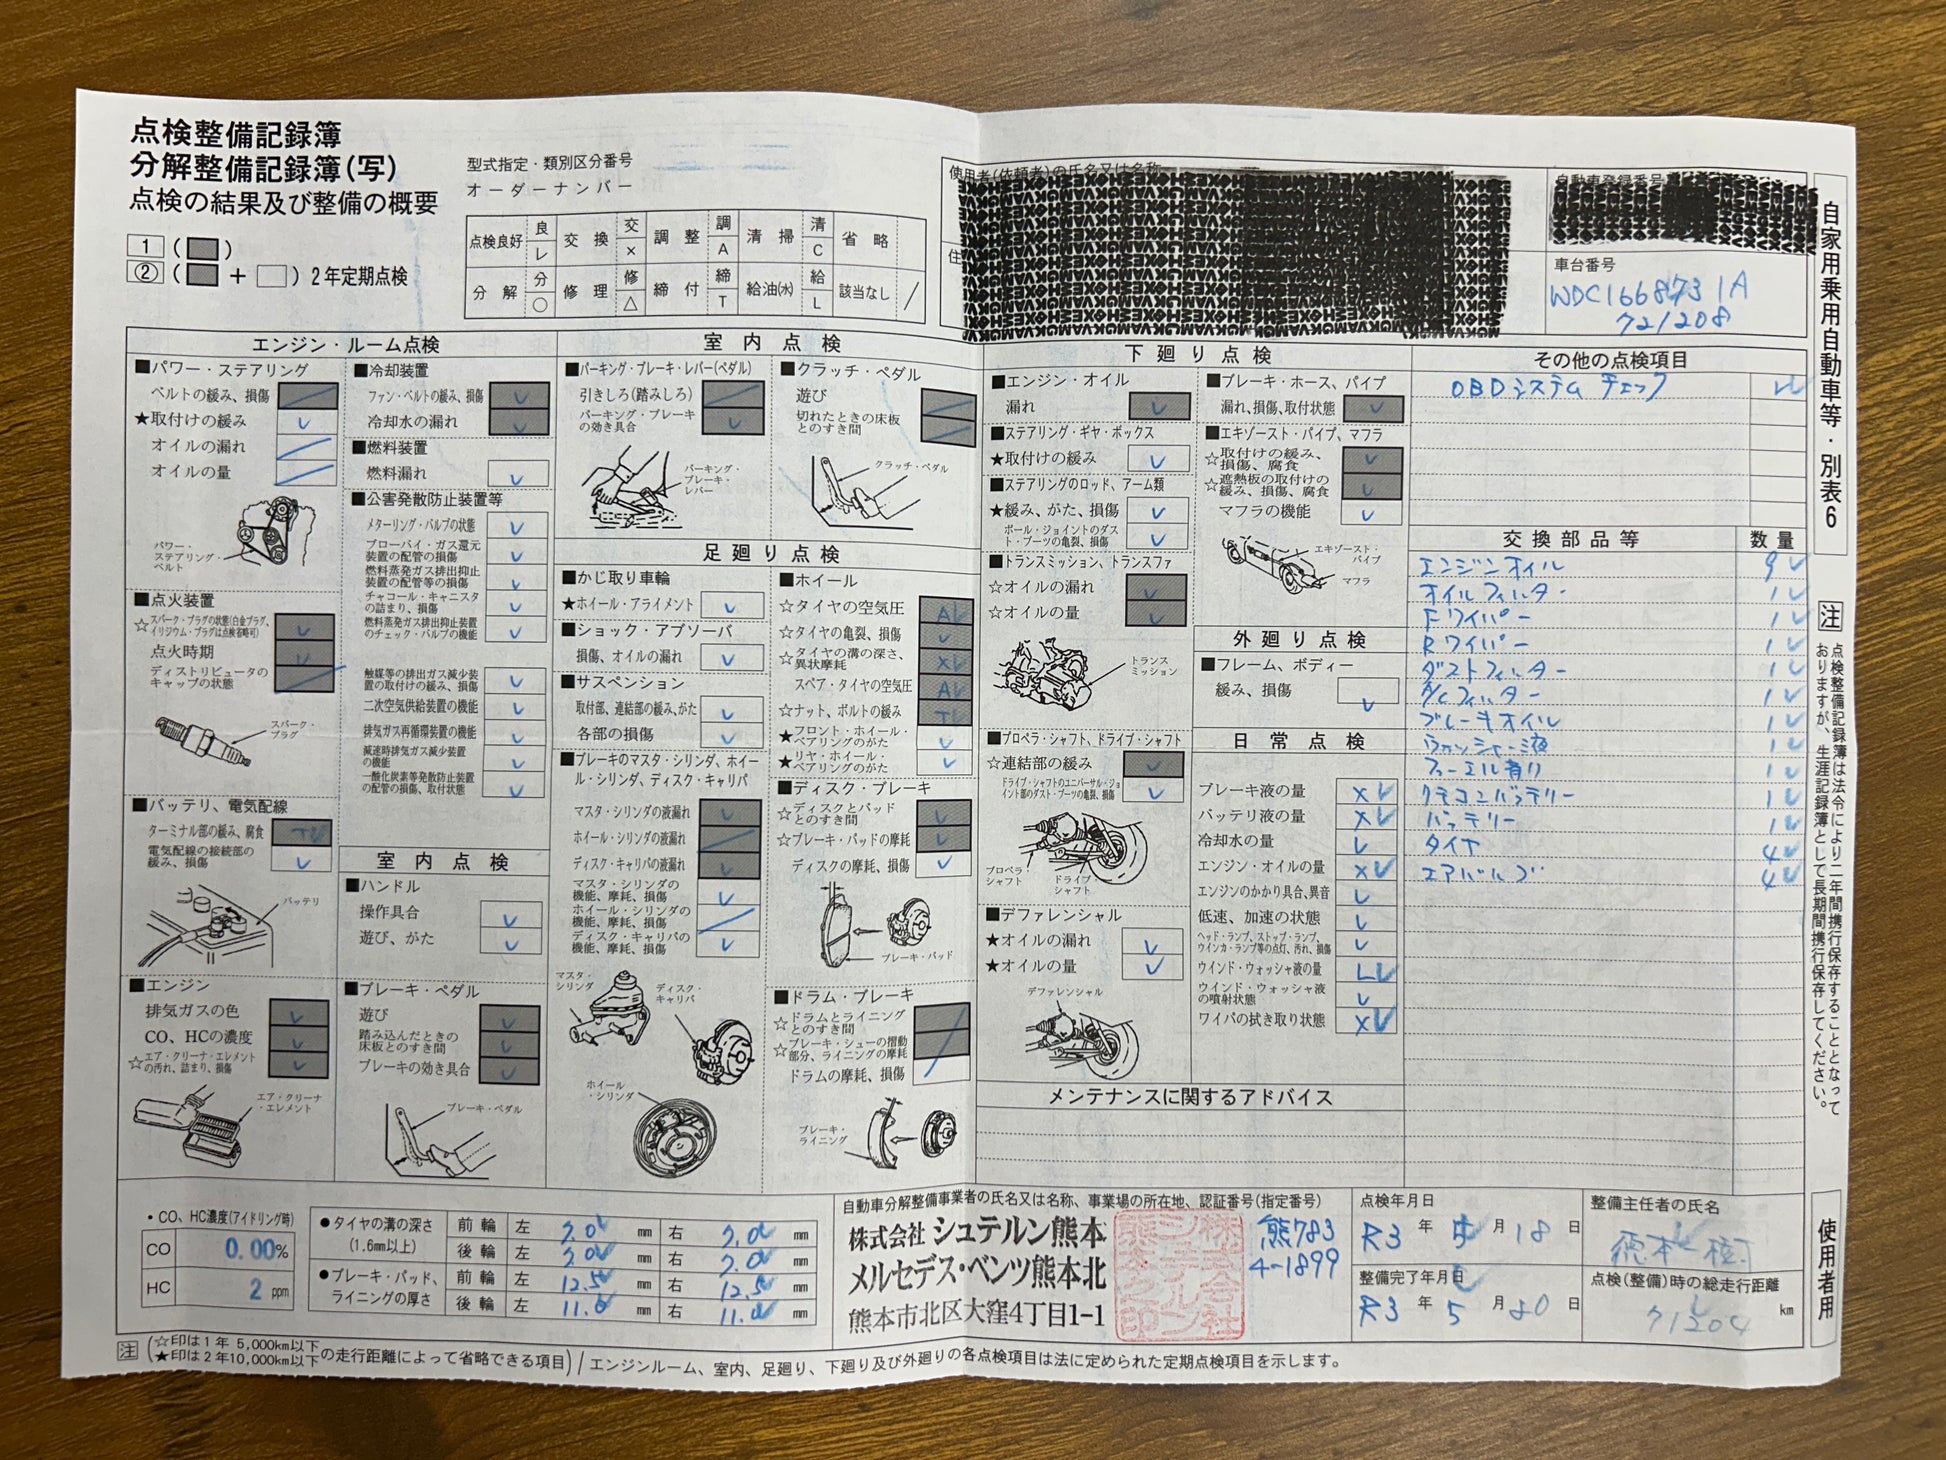 点検整備記録簿
分解整備記録簿(写)
点検の結果及び整備の概要
1 ( )
② ( + ) 2年定期点検
型式指定・類別区分番号
オーダーナンバー
点検良好 良 レ 交換 交 × 調整 調 A 清掃 清 C 省略
分解 分 ○ 修理 修 △ 締付 締 T 給油(水) 給 L 該当なし /
使用者(依頼者)の氏名又は名称
住
自動車登録番号
車台番号
WDC1668731A
721208
自家用乗用自動車等・別表6
エンジン・ルーム点検
■パワー・ステアリング
ベルトの緩み、損傷
★取付けの緩み レ
オイルの漏れ
オイルの量
パワー・ステアリング・ベルト
■点火装置
☆スパーク・プラグの状態(白金プラグ、イリジウム・プラグは点検省略可) レ
点火時期 レ
ディストリビュータのキャップの状態
スパーク・プラグ
■バッテリ、電気配線
ターミナル部の緩み、腐食 Tレ
電気配線の接続部の緩み、損傷 レ
バッテリ
■エンジン
排気ガスの色 レ
CO、HCの濃度 レ
☆エア・クリーナ・エレメントの汚れ、詰まり、損傷 レ
エア・クリーナ・エレメント
■冷却装置
ファン・ベルトの緩み、損傷 レ
冷却水の漏れ レ
■燃料装置
燃料漏れ レ
■公害発散防止装置等
メターリング・バルブの状態 レ
ブローバイ・ガス還元装置の配管の損傷 レ
燃料蒸発ガス排出抑止装置の配管等の損傷 レ
チャコール・キャニスタの詰まり、損傷 レ
燃料蒸発ガス排出抑止装置のチェック・バルブの機能 レ
触媒等の排出ガス減少装置の取付けの緩み、損傷 レ
二次空気供給装置の機能 レ
排気ガス再循環装置の機能 レ
減速時排気ガス減少装置の機能 レ
一酸化炭素等発散防止装置の配管の損傷、取付状態 レ
室内点検
■ハンドル
操作具合 レ
遊び、がた レ
■ブレーキ・ペダル
遊び レ
踏み込んだときの床板とのすき間 レ
ブレーキの効き具合 レ
ブレーキ・ペダル
室内点検
■パーキング・ブレーキ・レバー(ペダル)
引きしろ(踏みしろ)
パーキング・ブレーキの効き具合 レ
パーキング・ブレーキ・レバー
■クラッチ・ペダル
遊び
切れたときの床板とのすき間
クラッチ・ペダル
足廻り点検
■かじ取り車輪
★ホイール・アライメント レ
■ショック・アブソーバ
損傷、オイルの漏れ レ
■サスペンション
取付部、連結部の緩み、がた レ
各部の損傷 レ
■ブレーキのマスタ・シリンダ、ホイール・シリンダ、ディスク・キャリパ
マスタ・シリンダの液漏れ レ
ホイール・シリンダの液漏れ
ディスク・キャリパの液漏れ レ
マスタ・シリンダの機能、摩耗、損傷 レ
ホイール・シリンダの機能、摩耗、損傷
ディスク・キャリパの機能、摩耗、損傷 レ
マスタ・シリンダ
ディスク・キャリパ
ホイール・シリンダ
■ホイール
☆タイヤの空気圧 Aレ
☆タイヤの亀裂、損傷 レ
☆タイヤの溝の深さ、異状摩耗 ×レ
スペア・タイヤの空気圧 Aレ
☆ナット、ボルトの緩み Tレ
★フロント・ホイール・ベアリングのがた レ
★リヤ・ホイール・ベアリングのがた レ
■ディスク・ブレーキ
☆ディスクとパッドとのすき間 レ
☆ブレーキ・パッドの摩耗 レ
ディスクの摩耗、損傷 レ
ブレーキ・パッド
■ドラム・ブレーキ
☆ドラムとライニングとのすき間
☆ブレーキ・シューの摺動部分、ライニングの摩耗
ドラムの摩耗、損傷
ブレーキ・ライニング
下廻り点検
■エンジン・オイル
漏れ レ
■ステアリング・ギヤ・ボックス
★取付けの緩み レ
■ステアリングのロッド、アーム類
★緩み、がた、損傷 レ
ボール・ジョイントのダスト・ブーツの亀裂、損傷 レ
■トランスミッション、トランスファ
☆オイルの漏れ レ
☆オイルの量 レ
トランスミッション
■プロペラ・シャフト、ドライブ・シャフト
☆連結部の緩み レ
ドライブ・シャフトのユニバーサル・ジョイント部のダスト・ブーツの亀裂、損傷 レ
プロペラ・シャフト
ドライブ・シャフト
■デファレンシャル
★オイルの漏れ レ
★オイルの量 レ
デファレンシャル
■ブレーキ・ホース、パイプ
漏れ、損傷、取付状態 レ
■エキゾースト・パイプ、マフラ
☆取付けの緩み、損傷、腐食 レ
☆遮熱板の取付けの緩み、損傷、腐食 レ
マフラの機能 レ
エキゾースト・パイプ
マフラ
外廻り点検
■フレーム、ボディー
緩み、損傷 レ
日常点検
ブレーキ液の量 ×レ
バッテリ液の量 ×レ
冷却水の量 レ
エンジン・オイルの量 ×レ
エンジンのかかり具合、異音 レ
低速、加速の状態 レ
ヘッド・ランプ、ストップ・ランプ、ウインカ・ランプ等の点灯、汚れ、損傷 レ
ウインド・ウォッシャ液の量 Lレ
ウインド・ウォッシャ液の噴射状態 レ
ワイパの拭き取り状態 ×レ
メンテナンスに関するアドバイス
その他の点検項目
OBDシステムチェック レ
交換部品等 数量
エンジンオイル 9
オイルフィルター 1
Fワイパー 1
Rワイパー 1
ダストフィルター 1
A/Cフィルター 1
ブレーキオイル 1
ウォッシャー液 1
フューエル有り 1
リモコンバッテリー 1
バッテリー 1
タイヤ 4
エアバルブ 4
注 点検整備記録簿は法令により二年間携行保存することとなっておりますが、生涯記録簿として長期間携行保存してください。
使用者用
・CO、HC濃度(アイドリング時)
CO 0.00%
HC 2 ppm
●タイヤの溝の深さ(1.6mm以上) 前輪 左 7.0 mm 右 7.0 mm
後輪 左 7.0 mm 右 7.0 mm
●ブレーキ・パッド、ライニングの厚さ 前輪 左 12.5 mm 右 12.5 mm
後輪 左 11.0 mm 右 11.0 mm
自動車分解整備事業者の氏名又は名称、事業場の所在地、認証番号(指定番号)
株式会社 シュテルン熊本
メルセデス・ベンツ熊本北
熊本市北区大窪4丁目1-1
熊783
4-1899
点検年月日
R3年 5月 18日
整備完了年月日
R3年 5月 20日
整備主任者の氏名
点検(整備)時の総走行距離
71204 km
注 (☆印は1年 5,000km以下 ★印は2年10,000km以下の走行距離によって省略できる項目)/エンジンルーム、室内、足廻り、下廻り及び外廻りの各点検項目は法に定められた定期点検項目を示します。